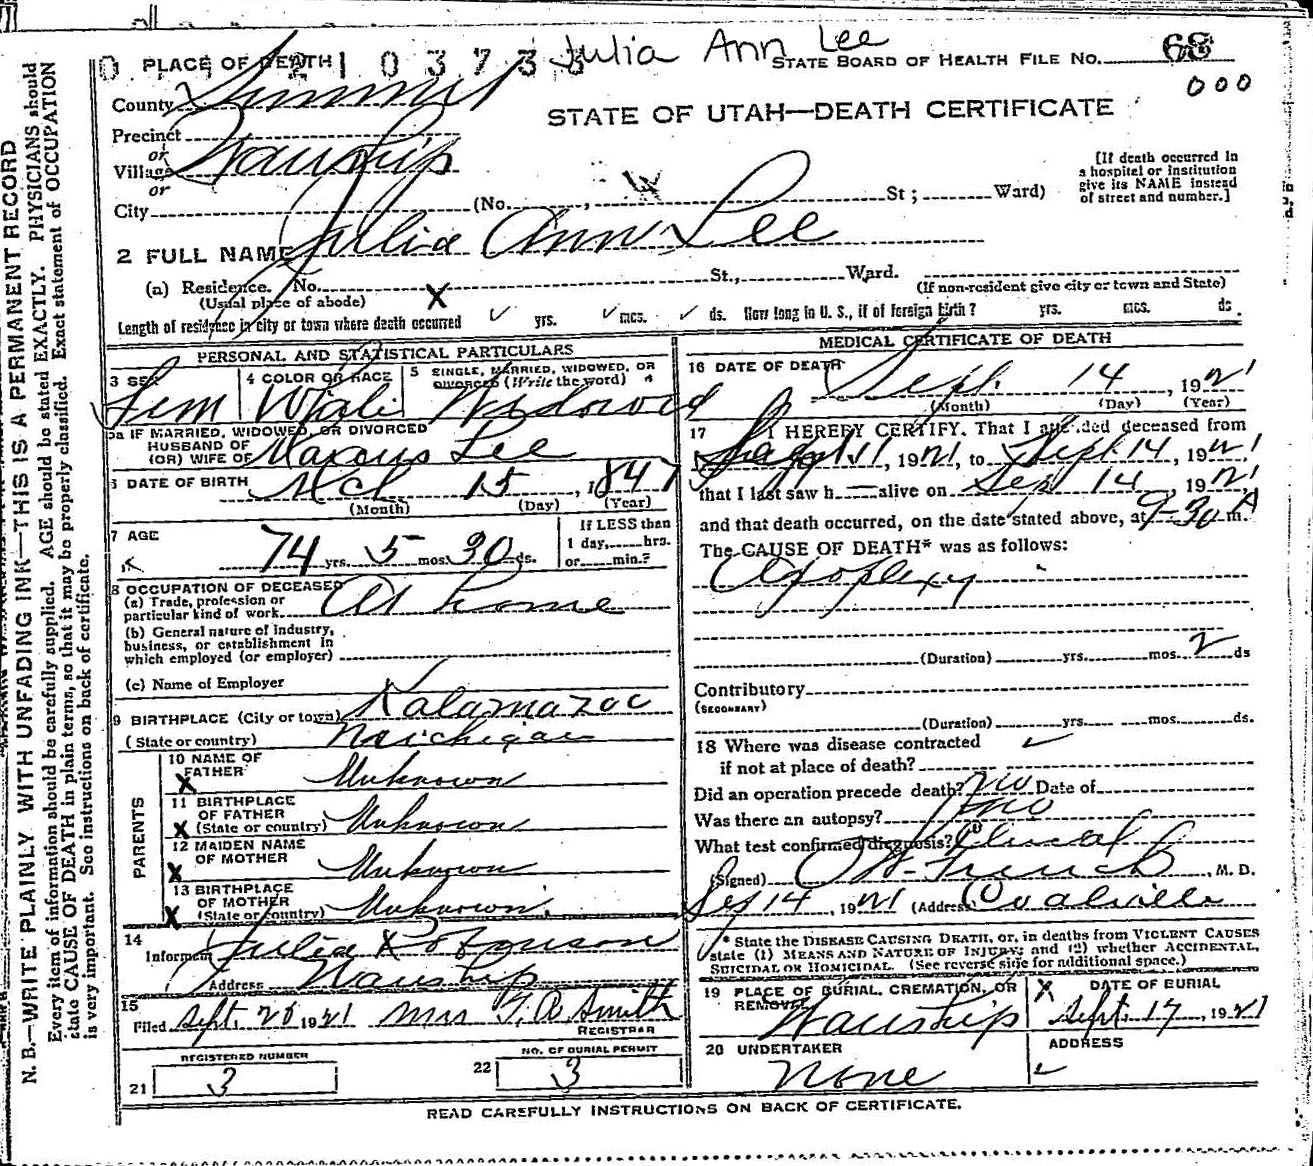 Julia Ann Lee
PLACE OF DEATH
STATE BOARD OF HEALTH FILE NO. 68
000
County Summit
STATE OF UTAH—DEATH CERTIFICATE
Precinct
or
Village Wanship
or
City (No. , St ; Ward)
[If death occurred in
a hospital or institution
give its NAME instead
of street and number.]
2 FULL NAME Julia Ann Lee
(a) Residence. No. St., Ward.
(Usual place of abode)
(If non-resident give city or town and State)
Length of residence in city or town where death occurred yrs. mcs. ds. How long in U. S., if of foreign birth? yrs. mcs. ds.
PERSONAL AND STATISTICAL PARTICULARS
3 SEX
Fem
4 COLOR OR RACE
White
5 SINGLE, MARRIED, WIDOWED, OR
DIVORCED (Write the word)
Widowed
5a IF MARRIED, WIDOWED, OR DIVORCED
HUSBAND OF
(OR) WIFE OF Marcus Lee
6 DATE OF BIRTH Mch 15, 1847
(Month) (Day) (Year)
7 AGE
74 yrs. 5 mos. 30 ds.
If LESS than
1 day, hrs.
or min.?
8 OCCUPATION OF DECEASED
(a) Trade, profession or
particular kind of work At home
(b) General nature of industry,
business, or establishment in
which employed (or employer)
(c) Name of Employer
9 BIRTHPLACE (City or town) Kalamazoo
(State or country) Michigan
PARENTS
10 NAME OF
FATHER Unknown
11 BIRTHPLACE
OF FATHER
(State or country) Unknown
12 MAIDEN NAME
OF MOTHER Unknown
13 BIRTHPLACE
OF MOTHER
(State or country) Unknown.
14
Informant Julia Robinson
Address Wanship
15
Filed Sept. 1921 Mrs Smith
REGISTRAR
REGISTERED NUMBER
21 3
NO. OF BURIAL PERMIT
22 3
MEDICAL CERTIFICATE OF DEATH
16 DATE OF DEATH
Sept. 14, 1921
(Month) (Day) (Year)
17 I HEREBY CERTIFY. That I attended deceased from
Sept 11, 1921, to Sept 14, 1921
that I last saw h alive on Sep 14, 1921
and that death occurred, on the date stated above, at 9-30 A m.
The CAUSE OF DEATH* was as follows:
Apoplexy
(Duration) yrs. mos. 2 ds
Contributory
(SECONDARY)
(Duration) yrs. mos. ds.
18 Where was disease contracted
if not at place of death?
Did an operation precede death? no Date of
Was there an autopsy? no
What test confirmed diagnosis? Clinical
(Signed) French, M. D.
Sep 14, 1921 (Address) Coalville
* State the DISEASE CAUSING DEATH, or, in deaths from VIOLENT CAUSES
state (1) MEANS AND NATURE OF INJURY; and (2) whether ACCIDENTAL,
SUICIDAL OR HOMICIDAL. (See reverse side for additional space.)
19 PLACE OF BURIAL, CREMATION, OR
REMOVAL
Wanship
DATE OF BURIAL
Sept. 17, 1921
20 UNDERTAKER
None
ADDRESS
READ CAREFULLY INSTRUCTIONS ON BACK OF CERTIFICATE.
N. B.—WRITE PLAINLY WITH UNFADING INK—THIS IS A PERMANENT RECORD
Every item of information should be carefully supplied. AGE should be stated EXACTLY. PHYSICIANS should
state CAUSE OF DEATH in plain terms, so that it may be properly classified. Exact statement of OCCUPATION
is very important. See instructions on back of certificate.